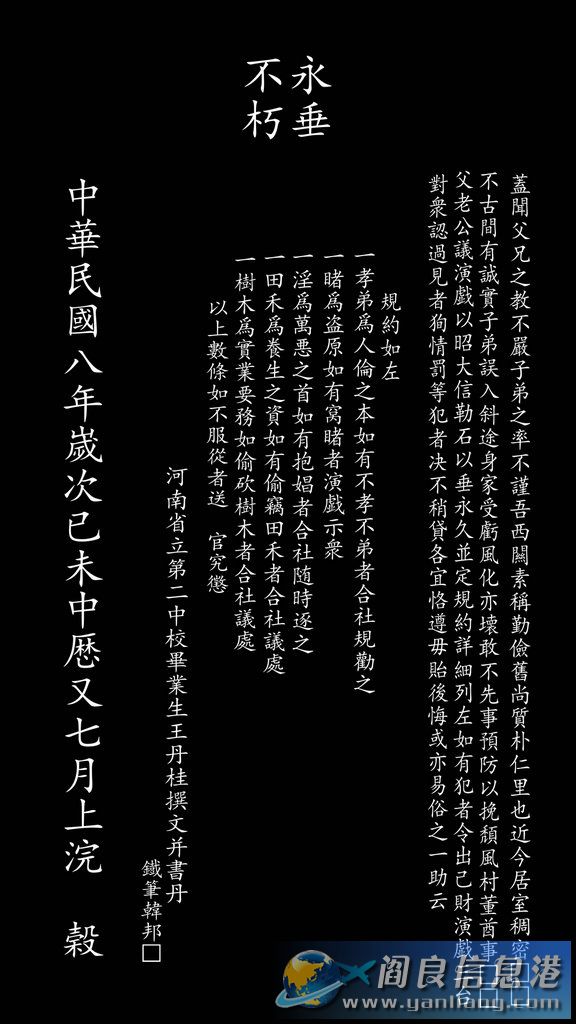 永垂
不朽
蓋聞父兄之教不嚴子弟之率不謹吾西闗素稱勤儉舊尚質朴仁里也近今居室稠密□□
不古間有誠實子弟誤入斜途身家受虧風化亦壞敢不先事預防以挽頹風村董酋事□□
父老公議演戲以昭大信勒石以垂永久並定規約詳細列左如有犯者令出己財演戲三台
對衆認過見者狥情罰等犯者决不稍貸各宜恪遵毋貽後悔或亦易俗之一助云
規約如左
一孝弟爲人倫之本如有不孝不弟者合社規勸之
一賭爲盜原如有窩賭者演戲示衆
一淫爲萬悪之首如有抱娼者合社随時逐之
一田禾爲養生之資如有偷竊田禾者合社議處
一樹木爲實業要務如偷砍樹木者合社議處
以上數條如不服從者送 官究懲
河南省立第二中校畢業生王丹桂撰文并書丹
鐵筆韓邦□
中華民國八年歲次己未中厯又七月上浣 榖
阎良信息港
www.yanliang.com